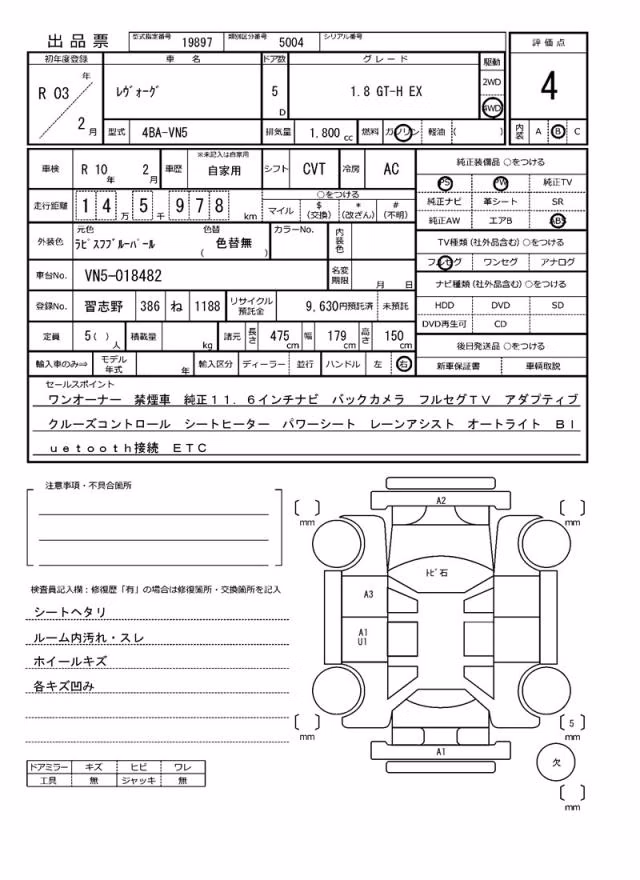 出品票 型式指定番号 19897 類別区分番号 5004 シリアル番号
評価点
4
内装 A B C
初年度登録 車名 ドア数 グレード 駆動
R 03 年 2 月 レヴォーグ 5 D 1.8 GT-H EX 2WD 4WD
型式 4BA-VN5 排気量 1.800 cc 燃料 ガソリン 軽油 ( )
車検 R 10 年 2 月 車歴 ※未記入は自家用 自家用 シフト CVT 冷房 AC
走行距離 1 4 万 5 千 9 7 8 km
○をつける
マイル $(交換) *(改ざん) #(不明)
外装色 元色 ラピスブブルーパール 色替 ( 色替無 ) カラーNo. 内装色
車台No. VN5-018482 名変期限 月 日
登録No. 習志野 386 ね 1188 リサイクル預託金 9,630円預託済 未預託
定員 5( ) 人 積載量 kg 諸元 長さ 475 cm 幅 179 cm 高さ 150 cm
輸入車のみ⇨ モデル年式 年 輸入区分 ディーラー 並行 ハンドル 左 右
純正装備品 ○をつける
PS PW 純正TV
純正ナビ 革シート SR
純正AW エアB ABS
TV種類(社外品含む)○をつける
フルセグ ワンセグ アナログ
ナビ種類(社外品含む)○をつける
HDD DVD SD
DVD再生可 CD
後日発送品 ○をつける
新車保証書 車輌取説
セールスポイント
ワンオーナー 禁煙車 純正11.6インチナビ バックカメラ フルセグTV アダプティブ
クルーズコントロール シートヒーター パワーシート レーンアシスト オートライト Bl
uetooth接続 ETC
注意事項・不具合箇所
検査員記入欄:修復歴「有」の場合は修復箇所・交換箇所を記入
シートヘタリ
ルーム内汚れ・スレ
ホイールキズ
各キズ凹み
ドアミラー キズ ヒビ ワレ
工具 無 ジャッキ 無
[ ] mm
A2
[ ] mm
トビ石
A3
A1
U1
[ ] mm
A1
[ 5 ] mm
欠
[ ] mm